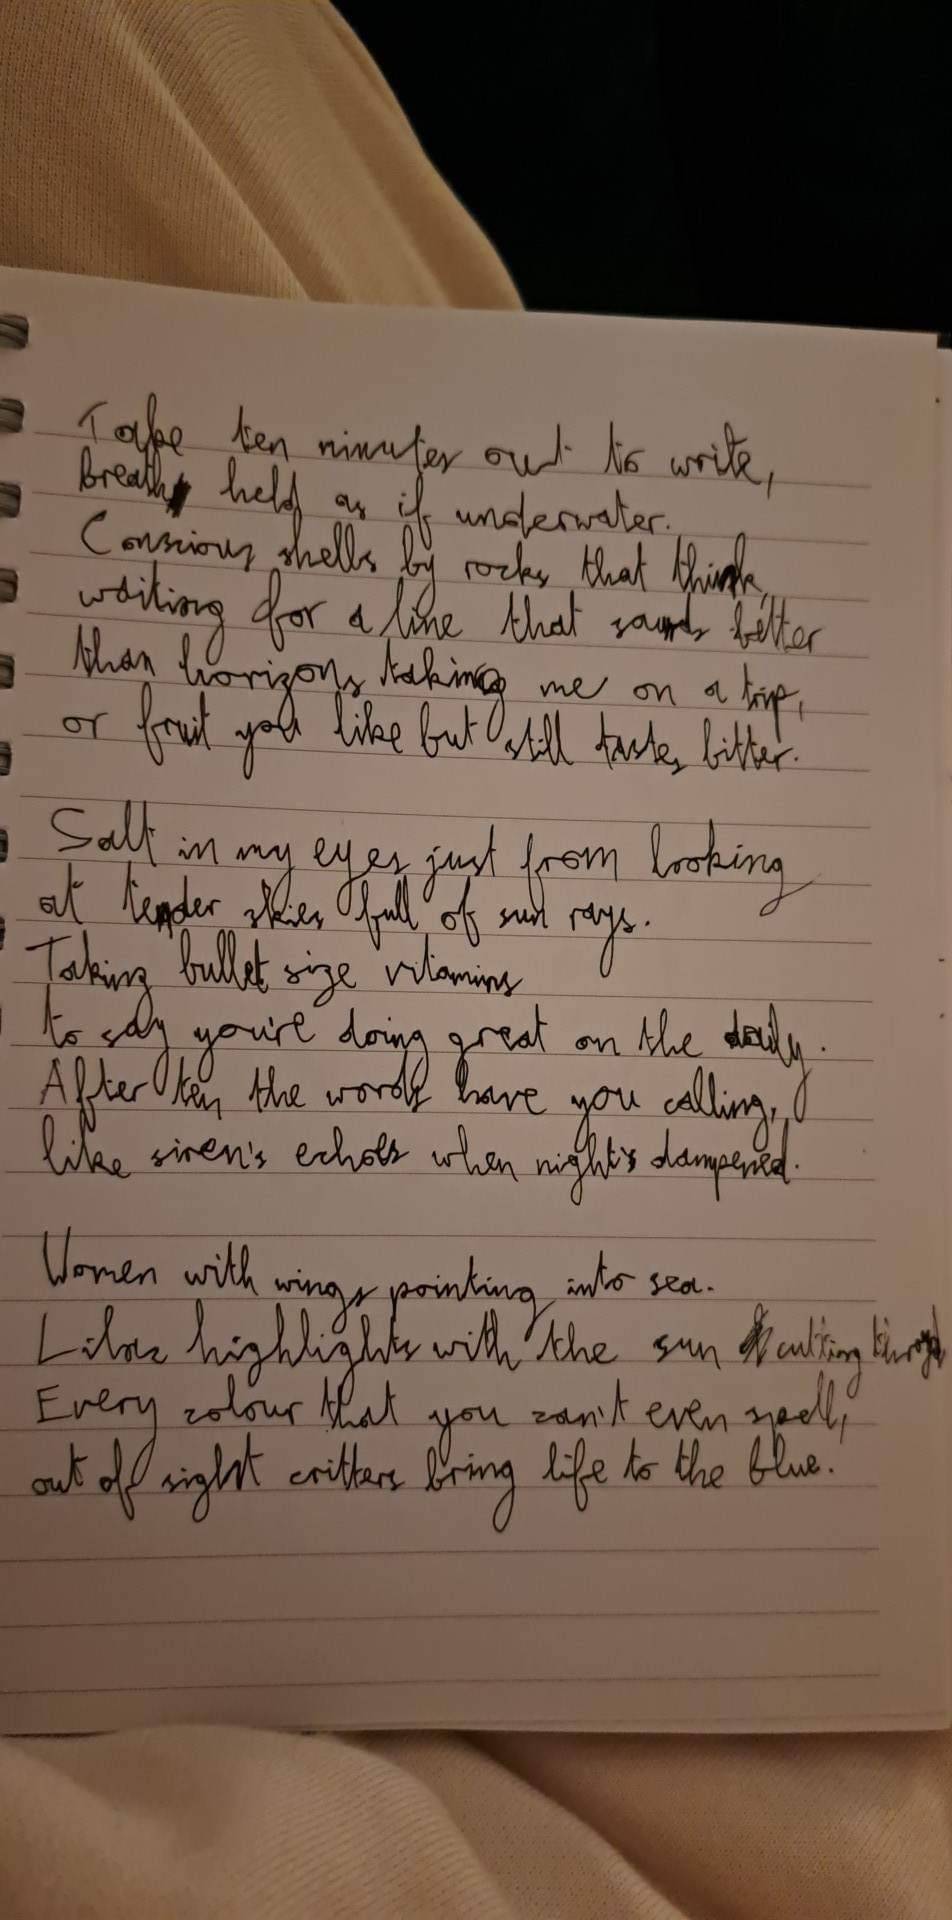 Take ten minutes out to write,
Breath held as if underwater.
Conscious shells by rocks that think,
waiting for a line that sounds better
than horizons taking me on a trip,
or fruit you like but still tastes bitter.
Salt in my eyes just from looking
at tender skies full of sun rays.
Taking bullet size vitamins
to say you're doing great on the daily.
After ten the words have you calling,
like siren's echoes when night's dampened.
Women with wings pointing into sea.
Lilac highlights with the sun cutting through
Every colour that you can't even spell,
out of sight critters bring life to the blue.